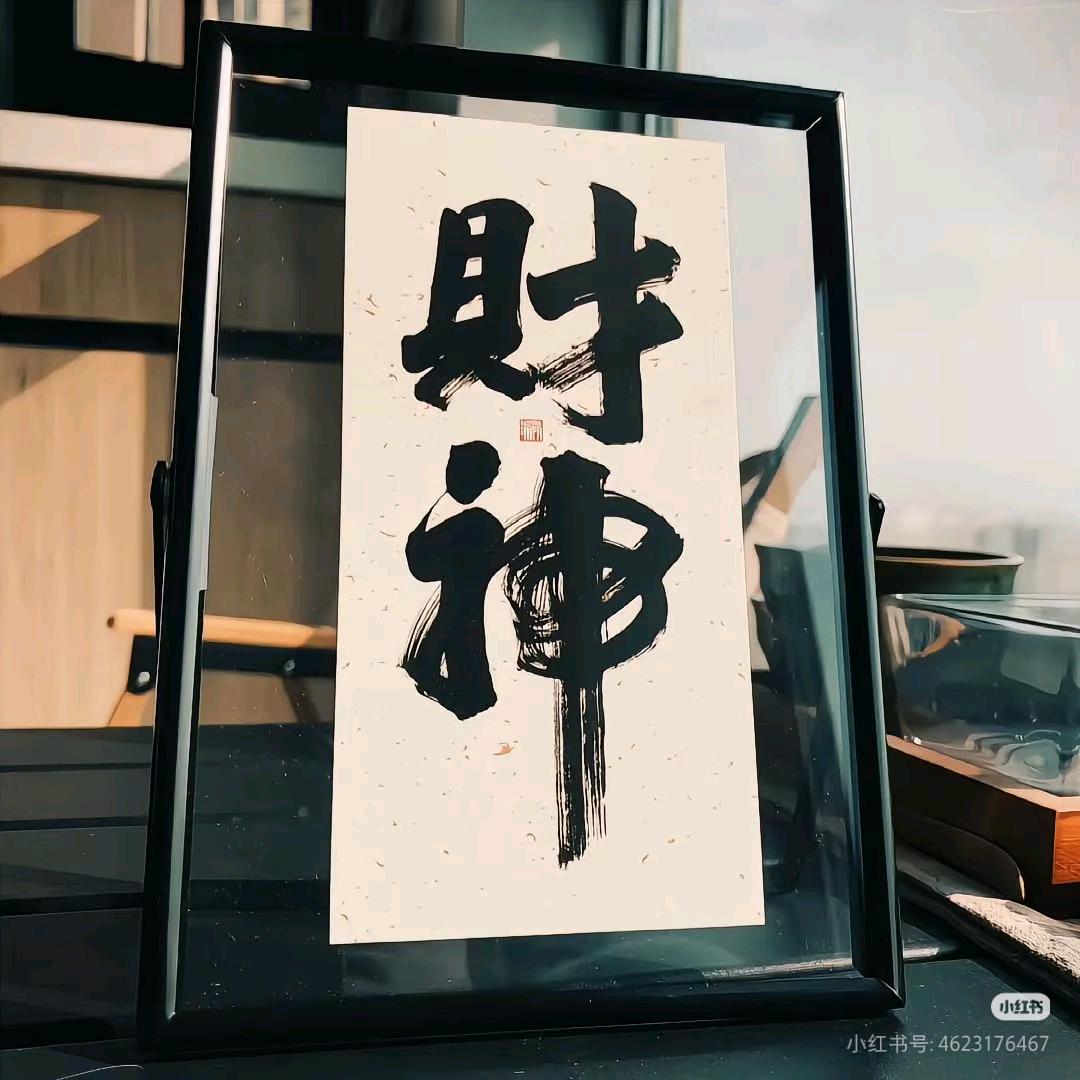 財
神
小红书
小红书号: 4623176467